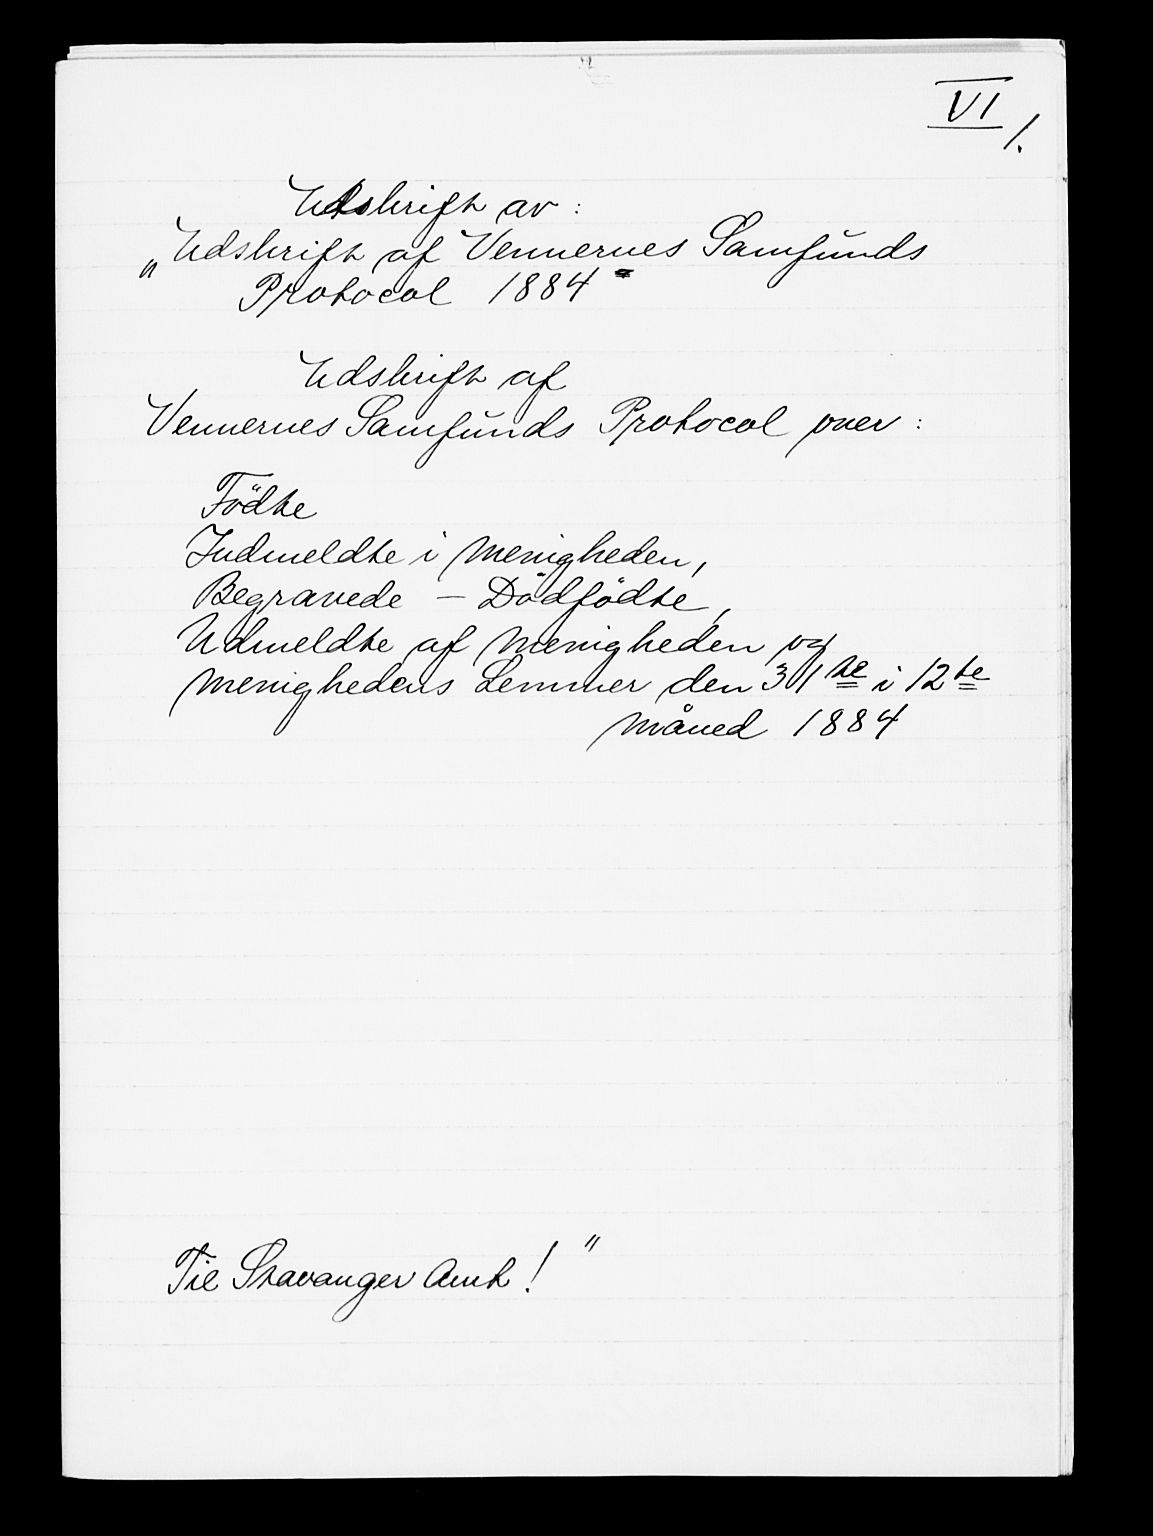 VI
1.
Utskrift av:
„Udskrift af Vennernes Samfunds
Protocol 1884"
Udskrift af
Vennernes Samfunds Protocol over:
Födte
Indmeldte i Menigheden,
Begravede – Dödfödte,
Udmeldte af Menigheden og
Menighedens Lemmer den 31te i 12te
Måned 1884
Til Stavanger Amt! "